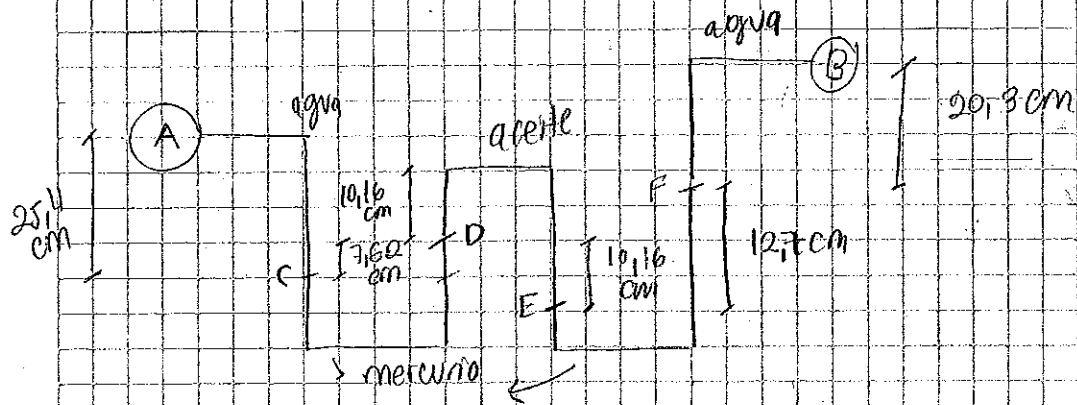 agua
B
20,3 cm
A
agua
aceite
25,4
cm
10,16
cm
F
D
7,62
cm
C
10,16
cm
12,7 cm
E
mercurio